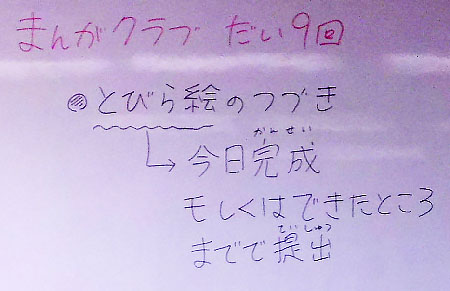 まんがクラブ だい9回
◎とびら絵のつづき
かんせい
→今日完成
もしくはできたところ
ていしゅつ
までで提出